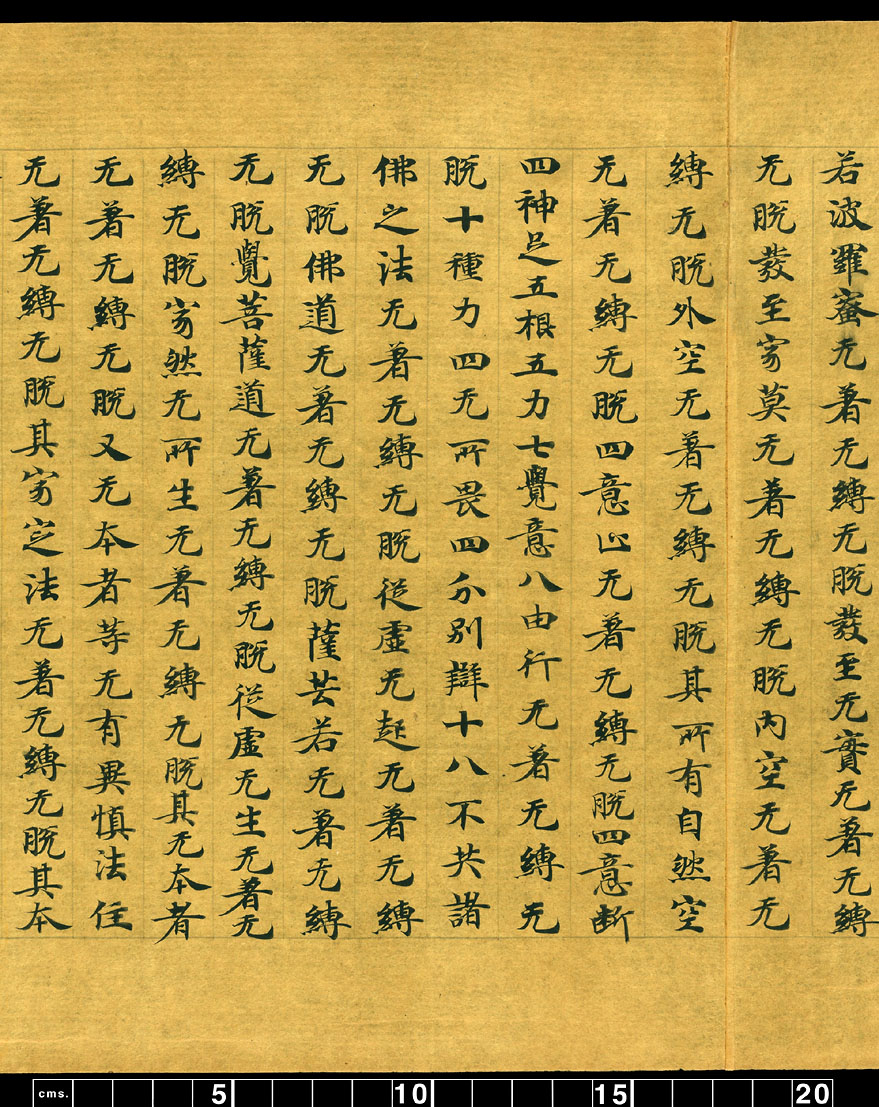 若波羅蜜无著无縛无脫發至无實无著无縛
无脫發至寂莫无著无縛无脫內空无著无
縛无脫外空无著无縛无脫其所有自然空
无著无縛无脫四意止无著无縛无脫四意斷
四神足五根五力七覺意八由行无著无縛无
脫十種力四无所畏四分別辯十八不共諸
佛之法无著无縛无脫從虛无起无著无縛
无脫佛道无著无縛无脫薩芸若无著无縛
无脫覺菩薩道无著无縛无脫從虛无生无著无
縛无脫寂然无所生无著无縛无脫其无本者
无著无縛无脫又无本者等无有異慎法住
无著无縛无脫其寂㝎法无著无縛无脫其本
cms. 5 10 15 20